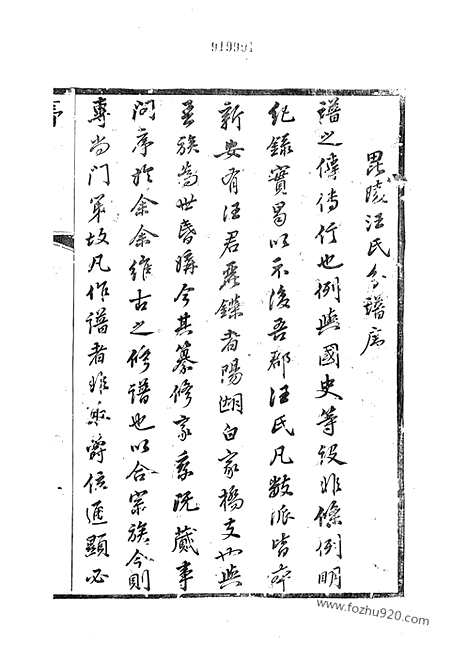 919991
毘陵汪氏分譜序
譜之傳待行也例與國史等後非條例明
紀錄實曷以示後吾郡汪氏凡數派皆本
新安有汪君廷鑠者陽湖白家橋支也與
吾族為世昏媾今其纂修家乘既蕆事
問序於余余維古之修譜也以合宗族今則
專尚門第故凡作譜者非私爵位通顯必
序
www.fozhu920.com